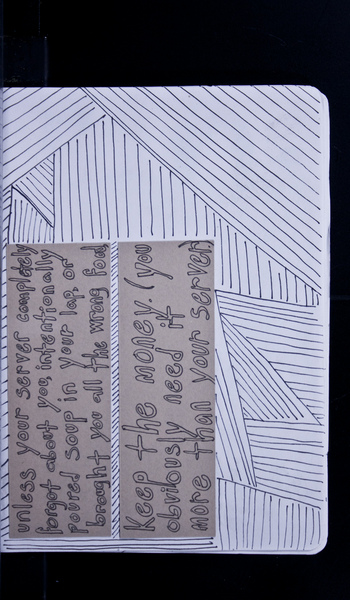 unless your server completely
forgot about you, intentionally
poured soup in your lap, or
brought you all the wrong food,
Keep the money. (you
obviously need it
more than your server)